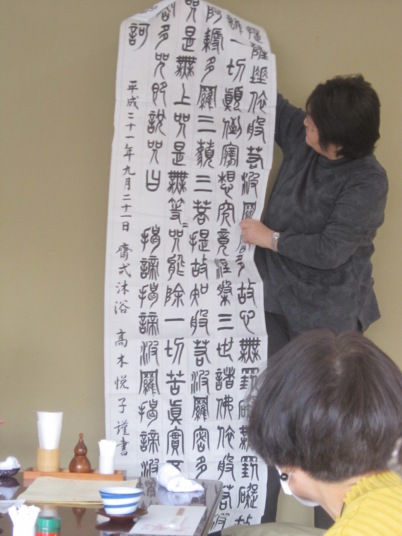 提薩埵依般若波羅蜜多故心無罣礙無罣礙故
離一切顛倒夢想究竟涅槃三世諸佛依般若波
阿耨多羅三藐三菩提故知般若波羅蜜多
咒是無上咒是無等〻咒能除一切苦真實不
多咒即說咒曰 揭諦揭諦波羅揭諦波
訶
平成二十一年九月二十一日 齋戒沐浴 高木悦子謹書